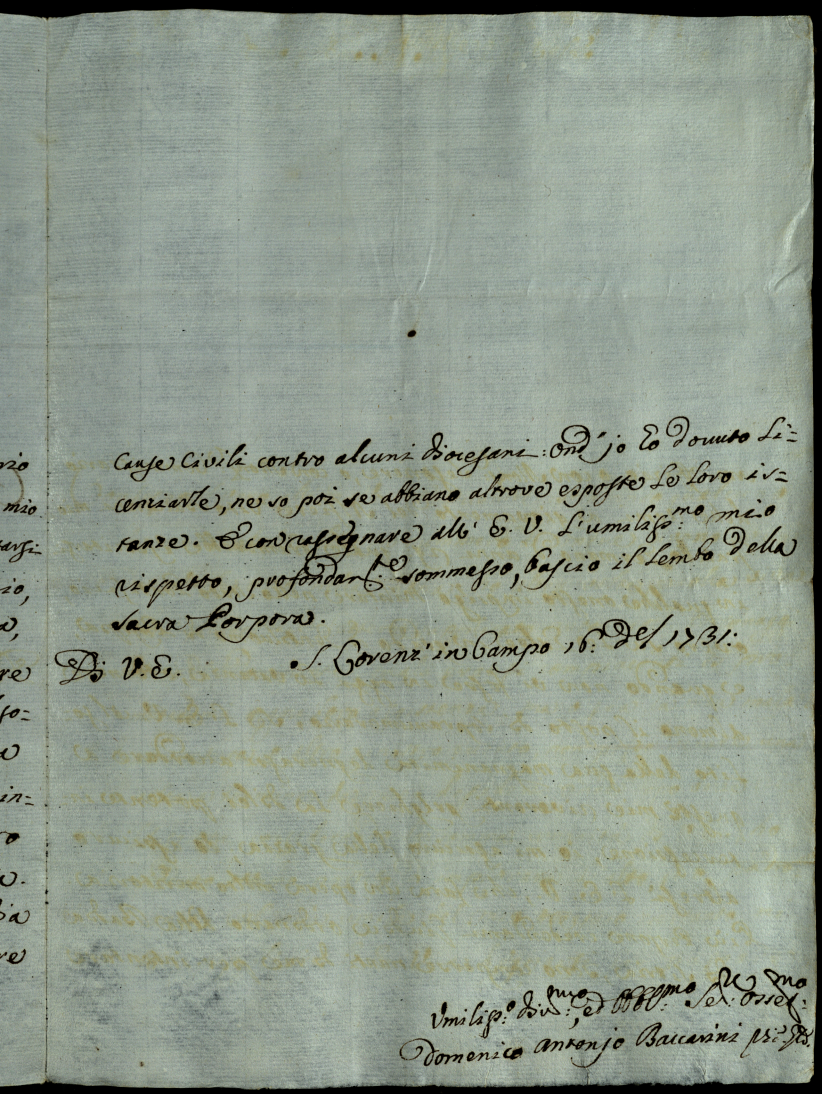 Cause Civili contro alcuni diocesani: ond' jo ho dovuto Li=
cenziarle, ne so poi se abbiano altrove esposte Le Loro is=
tanze. E con rassegnare all' E. V. L'umiliss.mo mio
rispetto, profondam.te sommesso, bascio il Lembo della
sacra Porpora.
Di V. E. S. Lorenz' in Campo 16. del 1731:
Umiliss.o div.mo, ed obbl.mo Se.re osseq.mo
Domenico Antonjo Baccarini
pio
mio
io,
a,
re
so=
a
in=
ro
a.
re